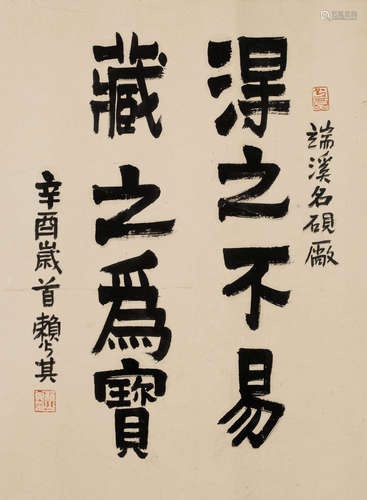 端溪名硯廠
得之不易
藏之爲寶
辛酉歲首賴少其